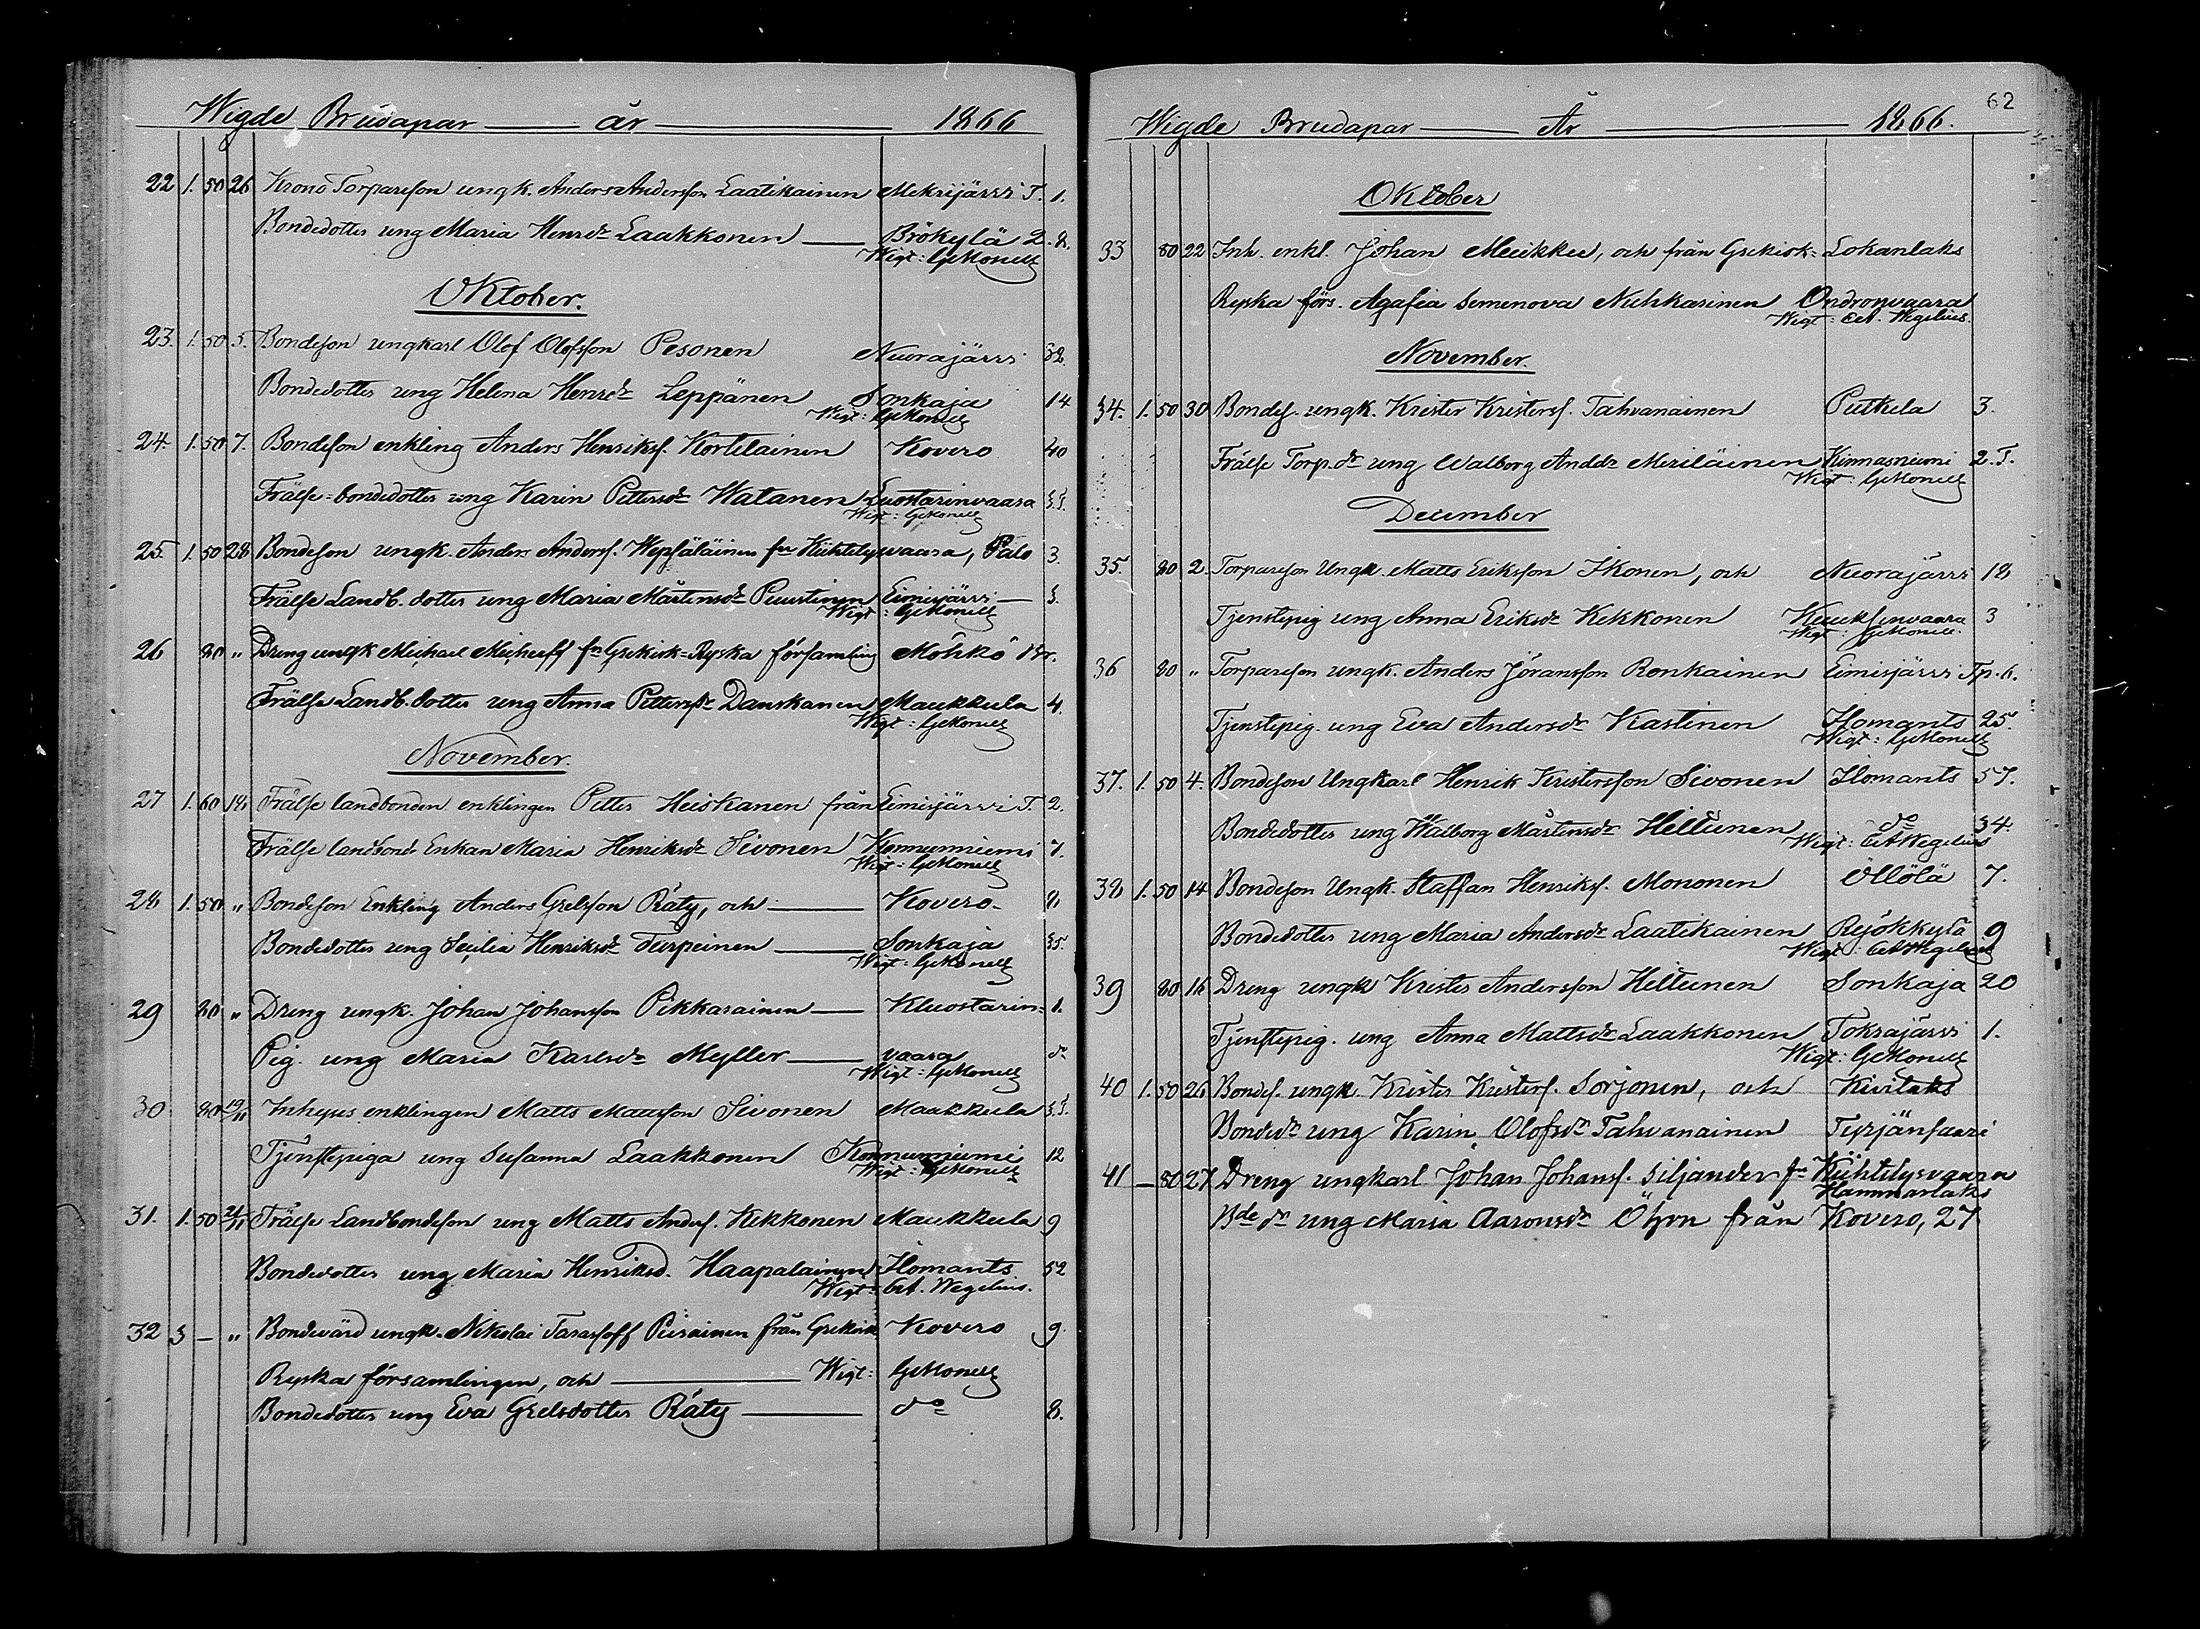 Wigde Brudapar år 1866
22 1. 50 26 Krono Torpareson ungk. Anders Andersson Laatikainen Mekrijärvi T. 1.
Bondedotter ung Maria Henrsdr Laakkonen Brökylä 2. 8.
Wigt: GMonell
Oktober.
23. 1. 50 5. Bondeson ungkarl Olof Olofsson Pesonen Nuorajärvi 32.
Bondedotter ung Helena Henrsdr Leppänen Sonkaja 14
Wigt: GMonell
24. 1. 50 7. Bondeson enkling Anders Henriksf. Kortelainen Kovero 40
Frälse-bondedotter ung Karin Pettersdr Watanen Luostarinvaara
Wigt: GMonell
25. 1. 50 28 Bondeson ungk. Anders Andersf. Wepsäläinen frn Kiihtelyswaara, Palo 3.
Frälse Landb. dotter ung Maria Mårtensdr Puustinen Eimisjärvi
Wigt: GMonell
26 80 " Dreng ungk Michael Micheeff frn Grekisk-Ryska församling Möhkö
Frälse Landb. dotter ung Anna Pettersdr Danskanen Maukkula 4.
Wigt: GMonell
November.
27 1. 60 18 Frälse landbonden enklingen Petter Heiskanen från Eimisjärvi T. 2.
Frälse landbonde Enkan Maria Henriksdr Sivonen Konnunniemi 7.
Wigt: GMonell
28 1. 50 " Bondeson Enkling Anders Grelsson Räty, och Kovero 8
Bondedotter ung Secilia Henriksdr Turpeinen Sonkaja 35.
Wigt: GMonell
29 80 " Dreng ungk. Johan Johansson Pikkarainen Kluostarin- 1.
Pig. ung Maria Karlsdr Myller vaara do
Wigt: GMonell
30 80 19/11 Inhyses enklingen Matts Mattsson Sivonen Maukkula
Tjenstepiga ung Susanna Laakkonen Konnunniemi 12
Wigt: GMonell
31. 1. 50 21/11 Frälse Landbondeson ung Matts Andersf. Kekkonen Maukkula 9
Bondedotter ung Maria Henriksd. Haapalainen Ilomants 52
Wigt: Wegelius.
32 3 — " Bondevärd ungk. Nikolai Tarasoff Piirainen från Grekisk Kovero 9.
Ryska församlingen, och Wigt: GMonell
Bondedotter ung Eva Grelsdotter Räty do 8.
62
Wigde Brudapar År 1866.
Oktober
33 80 22 Inh. enkl. Johan Muikku, och från Grekisk- Lokanlaks
Ryska förs. Agafia Semenova Nuhkarinen Ondronvaara
Wigt: Wegelius.
November.
34. 1. 50 30 Bondes. ungk. Krister Kristersf. Tahvanainen Putkela 3.
Frälse Torp.dr ung Walborg Anddr Meriläinen Kinnasniemi 2. T.
Wigt: GMonell
December
35. 80 2. Torpareson Ungk. Matts Eriksson Ikonen, och Nuorajärvi 18
Tjenstepig ung Anna Eriksdr Kekkonen Kuuksenvaara 3
Wigt: GMonell
36 80 " Torpareson ungk. Anders Jöransson Ronkainen Eimisjärvi Tp. 6.
Tjenstepig. ung Eva Andersdr Kastinen Ilomants 25.
Wigt: GMonell
37. 1. 50 4. Bondeson Ungkarl Henrik Kristersson Sivonen Ilomants 57.
Bondedotter ung Walborg Mårtensdr Hiltunen do 34.
Wigt: Wegelius
38 1. 50 14 Bondeson Ungk. Staffan Henriksf. Mononen Öllölä 7.
Bondedotter ung Maria Andersdr Laatikainen Rejökkylä 9
Wigt: Wegelius
39 80 16 Dreng ungk Krister Andersson Hiltunen Sonkaja 20
Tjenstepig. ung Anna Mattsdr Laakkonen Tokrajärvi 1.
Wigt: GMonell
40 1. 50 26 Bondes. ungk Krister Kristersf. Sorjonen, och Kivilaks
Bondedr ung Karin Olofsdr Tahvanainen Tyrjänsaari
41 — 80 27 Dreng ungkarl Johan Johansf. Siljander frn Kiihtelysvaara
Hammarlaks
Bde dr ung Maria Aaronsdr Öhrn från Kovero, 27